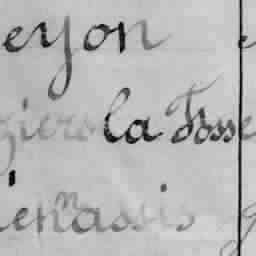 eyon
ziers la Fosse
ienassis